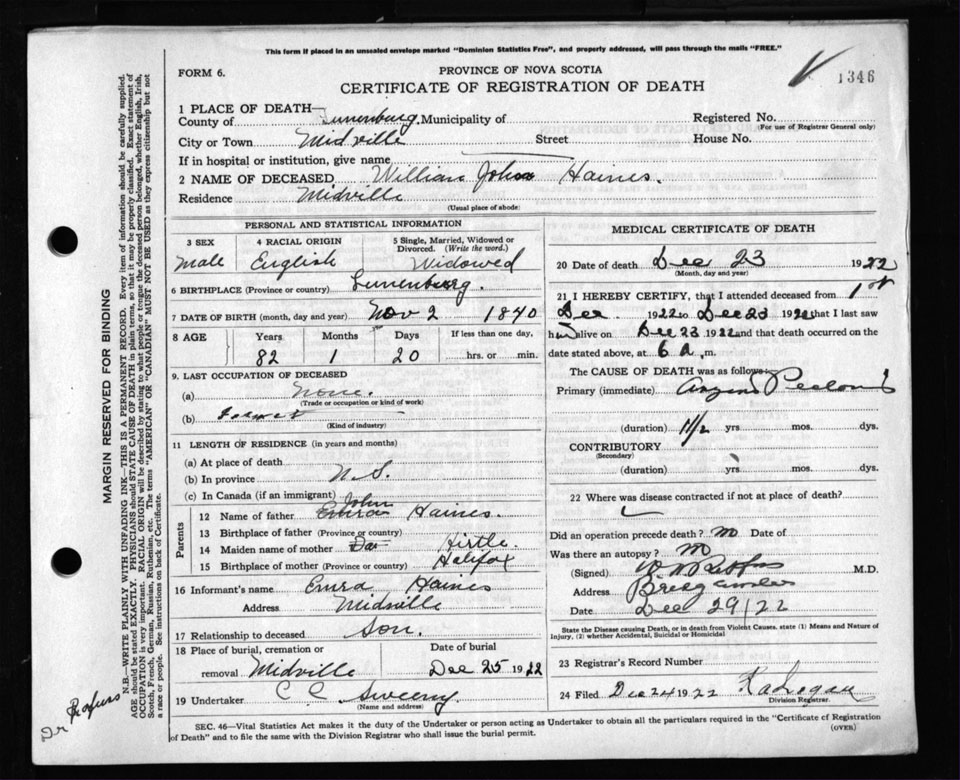 This form if placed in an unsealed envelope marked "Dominion Statistics Free", and properly addressed, will pass through the mails "FREE."
FORM 6.
PROVINCE OF NOVA SCOTIA
1346
CERTIFICATE OF REGISTRATION OF DEATH
1 PLACE OF DEATH—
County of Lunenburg. Municipality of Registered No.
(For use of Registrar General only)
City or Town Midville Street House No.
If in hospital or institution, give name
2 NAME OF DECEASED William John Haines.
Residence Midville
(Usual place of abode)
PERSONAL AND STATISTICAL INFORMATION
3 SEX 4 RACIAL ORIGIN 5 Single, Married, Widowed or Divorced. (Write the word.)
Male English Widowed
6 BIRTHPLACE (Province or country) Lunenburg.
7 DATE OF BIRTH (month, day and year) Nov 2 1840
8 AGE Years Months Days If less than one day,
82 1 20 hrs. or min.
9. LAST OCCUPATION OF DECEASED
(a) None.
(Trade or occupation or kind of work)
(b) Farmer
(Kind of industry)
11 LENGTH OF RESIDENCE (in years and months)
(a) At place of death
(b) In province N.S.
(c) In Canada (if an immigrant)
Parents
John
12 Name of father Emra Haines.
13 Birthplace of father (Province or country)
14 Maiden name of mother Hirtle
15 Birthplace of mother (Province or country) Halifax
16 Informant's name Emra Haines
Address Midville
17 Relationship to deceased Son.
18 Place of burial, cremation or removal Midville
Date of burial Dec 25 1922
19 Undertaker C C Sweeny
(Name and address)
MEDICAL CERTIFICATE OF DEATH
20 Date of death Dec 23 1922
(Month, day and year)
21 I HEREBY CERTIFY, that I attended deceased from 1st
Dec 1922 to Dec 23 1922 that I last saw
him alive on Dec 23 1922 and that death occurred on
date stated above, at 6 a, m.
The CAUSE OF DEATH was as follows:
Primary (immediate) Angina Pectoris
(duration) 1 1/2 yrs mos. dys.
CONTRIBUTORY
(Secondary)
(duration) yrs mos. dys.
22 Where was disease contracted if not at place of death?
Did an operation precede death? no Date of
Was there an autopsy? no
(Signed) M.D.
Address Bridgewater
Date Dec 29/22
State the Disease causing Death, or in death from Violent Causes, state (1) Means and Nature of Injury, (2) whether Accidental, Suicidal or Homicidal
23 Registrar's Record Number
24 Filed Dec 24 1922
Division Registrar.
SEC. 46—Vital Statistics Act makes it the duty of the Undertaker or person acting as Undertaker to obtain all the particulars required in the "Certificate of Registration of Death" and to file the same with the Division Registrar who shall issue the burial permit.
(OVER)
MARGIN RESERVED FOR BINDING
N.B.—WRITE PLAINLY WITH UNFADING INK—THIS IS A PERMANENT RECORD. Every item of information should be carefully supplied.
AGE should be stated EXACTLY. PHYSICIANS should STATE CAUSE OF DEATH in plain terms, so that it may be properly classified. Exact statement of
OCCUPATION is very important. RACIAL ORIGIN will be described by stating to what people or tongue the deceased person belonged, whether English, Irish,
Scotch, French, German, Russian, Ruthenian, etc. The terms "AMERICAN" or "CANADIAN" MUST NOT BE USED as they express citizenship but not
a race or people. See instructions on back of Certificate.
Dr